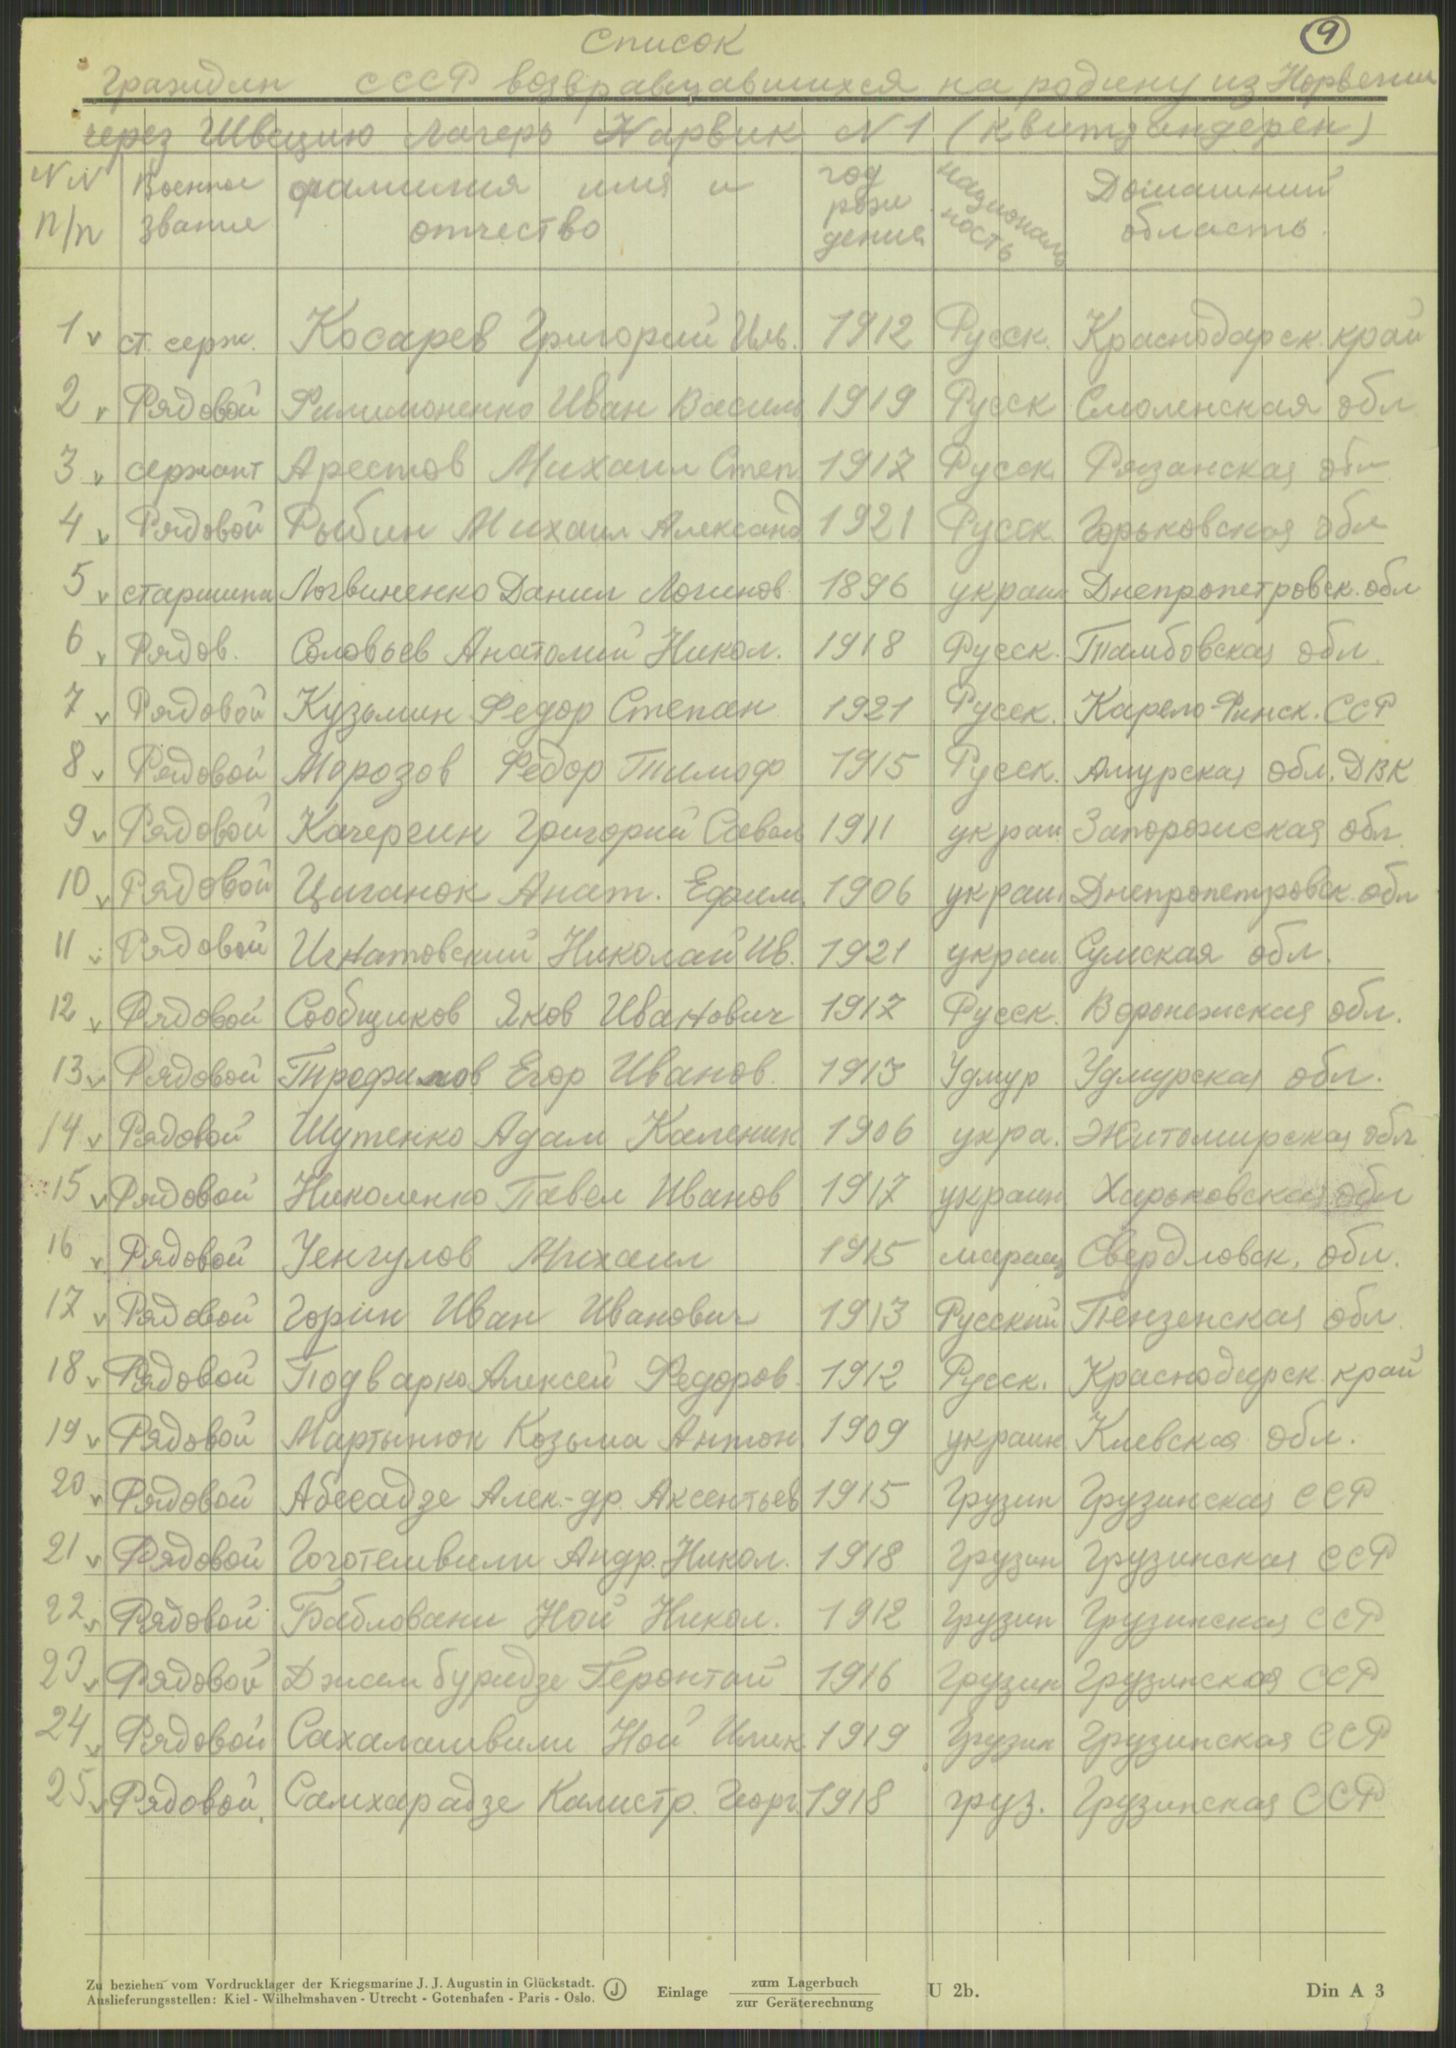 9
Список
Граждан СССР возвращавшихся на родину из Норвегии
через Швецию Лагерь Нарвик N 1 (Квитзандерен)
NN п/п Военное звание фамилия имя и отчество год рождения национальность Домашний область.
1 v ст. серж. Косарев Григорий Иль. 1912 Русск. Краснодарск. край
2 v Рядовой Филимоненко Иван Васил 1919 Русск Смоленская обл
3 v сержант Арестов Михаил Степ 1917 Русск Рязанская обл
4 v Рядовой Рыбин Михаил Александ 1921 Русск. Горьковская обл
5 v старшина Логвиненко Данил Логинов 1896 украин Днепропетровск. обл
6 v Рядов. Соловьев Анатолий Никол. 1918 Русск. Тамбовская обл.
7 v Рядовой Кузьмин Федор Степан 1921 Русск. Карело-Финск. ССР
8 v Рядовой Морозов Федор Тимоф 1915 Русск. Амурская обл. ДВК
9 v Рядовой Качергин Григорий Савел 1911 украи Запорожская обл.
10 v Рядовой Циганок Анат. Ефим. 1906 украи. Днепропетровск. обл
11 v Рядовой Игнатовский Николай Ив. 1921 украи Сумская обл.
12 v Рядовой Сообщиков Яков Иванович 1917 Русск. Воронежская обл.
13 v Рядовой Трофимов Егор Иванов. 1913 Удмур Удмурская обл.
14 v Рядовой Шутенко Адам Каленик 1906 укра. Житомирская обл
15 v Рядовой Николенко Павел Иванов 1917 украин Харьковская обл
16 v Рядовой Уенгулов Михаил 1915 Свердловск. обл.
17 v Рядовой Горин Иван Иванович 1913 Русский Пензенская обл.
18 v Рядовой Подварко Алексей Федоров. 1912 Русск. Краснодарск. край
19 v Рядовой Мартынюк Козьма Антон. 1909 украин Киевская обл.
20 v Рядовой Абесадзе Алек-др. Аксентьев 1915 Грузин Грузинская ССР
21 v Рядовой Гоготешвили Андр. Никол. 1918 Грузин Грузинская ССР
22 v Рядовой Бабловани Ной Никол. 1912 Грузин Грузинская ССР
23 v Рядовой Джамбуридзе Геронтий 1916 Грузин Грузинская ССР
24 v Рядовой Сахалашвили Ной Илик 1919 Грузин Грузинская ССР
25 v Рядовой. Самхарадзе Калистр. Георг. 1918 груз. Грузинская ССР
Zu beziehen vom Vordrucklager der Kriegsmarine J. J. Augustin in Glückstadt.
Auslieferungsstellen: Kiel - Wilhelmshaven - Utrecht - Gotenhafen - Paris - Oslo.
J
Einlage zum Lagerbuch
zur Geräterechnung
U 2b.
Din A 3